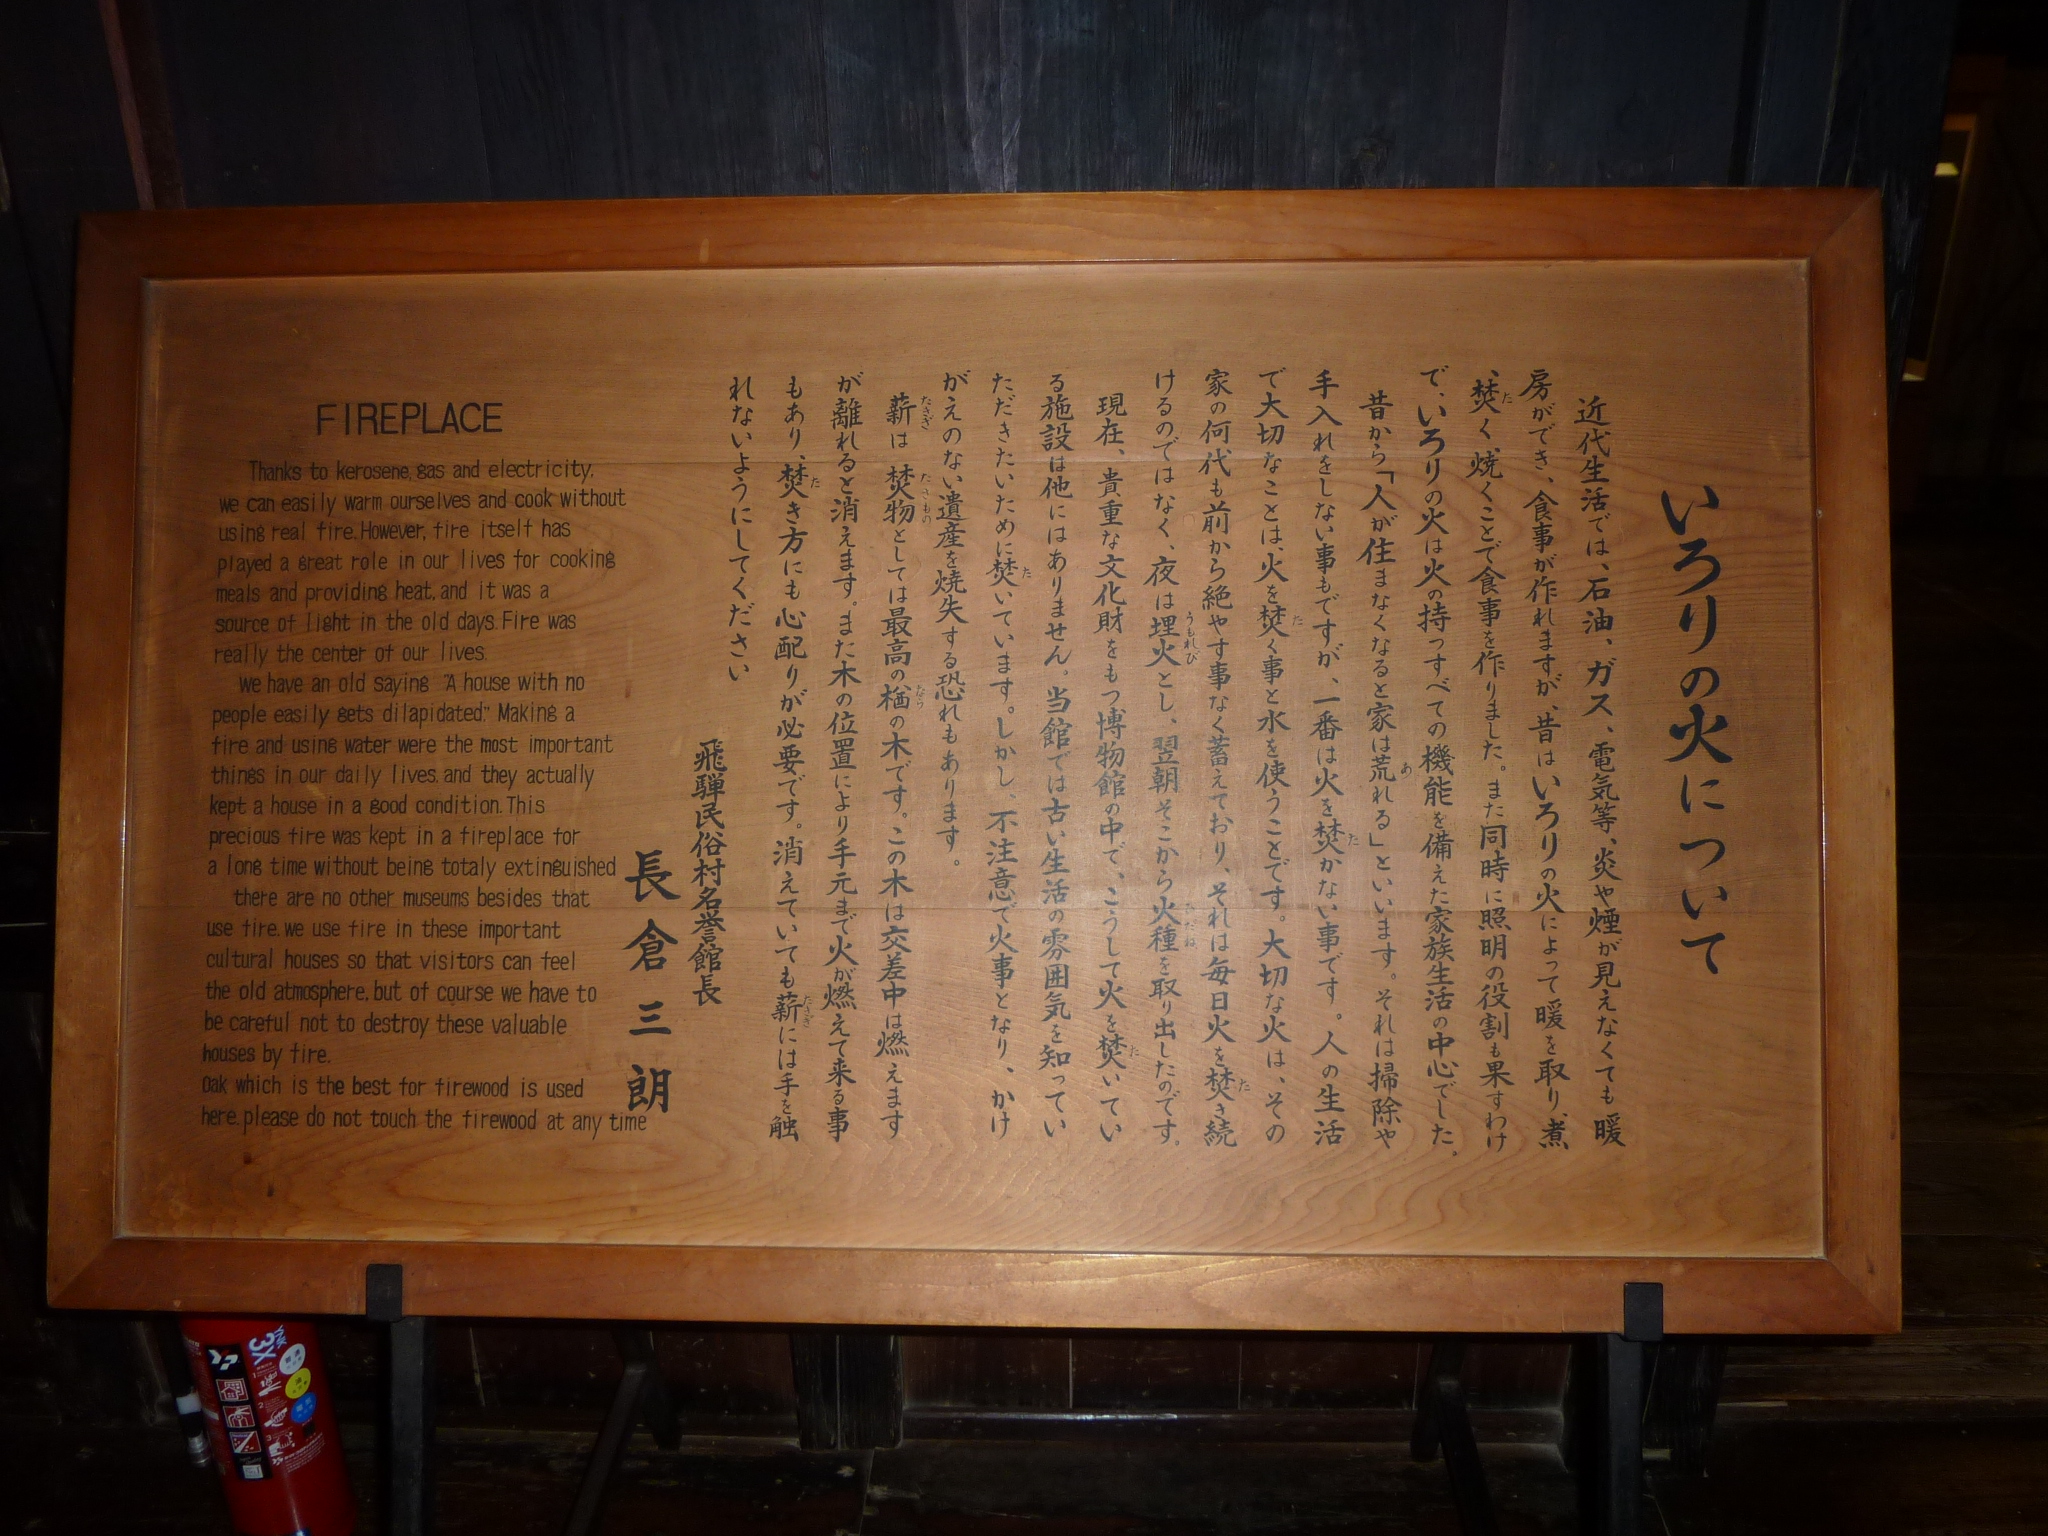 いろりの火について
近代生活では、石油、ガス、電気等、炎や煙が見えなくても暖
房ができ、食事が作れますが、昔はいろりの火によって暖を取り、煮
、焚く、焼くことで食事を作りました。また同時に照明の役割も果すわけ
で、いろりの火は火の持つすべての機能を備えた家族生活の中心でした。
昔から「人が住まなくなると家は荒れる」といいます。それは掃除や
手入れをしない事もですが、一番は火を焚かない事です。人の生活
で大切なことは、火を焚く事と水を使うことです。大切な火は、その
家の何代も前から絶やす事なく蓄えており、それは毎日火を焚き続
けるのではなく、夜は埋火とし、翌朝そこから火種を取り出したのです。
現在、貴重な文化財をもつ博物館の中で、こうして火を焚いてい
る施設は他にはありません。当館では古い生活の雰囲気を知ってい
ただきたいために焚いています。しかし、不注意で火事となり、かけ
がえのない遺産を焼失する恐れもあります。
薪は焚物としては最高の楢の木です。この木は交差中は燃えます
が離れると消えます。また木の位置により手元まで火が燃えて来る事
もあり、焚き方にも心配りが必要です。消えていても薪には手を触
れないようにしてください
飛騨民俗村名誉館長
長倉三朗
FIREPLACE
Thanks to kerosene, gas and electricity,
we can easily warm ourselves and cook without
using real fire. However, fire itself has
played a great role in our lives for cooking
meals and providing heat, and it was a
source of light in the old days. Fire was
really the center of our lives.
We have an old saying "A house with no
people easily gets dilapidated." Making a
fire and using water were the most important
things in our daily lives, and they actually
kept a house in a good condition. This
precious fire was kept in a fireplace for
a long time without being totaly extinguished
there are no other museums besides that
use fire. we use fire in these important
cultural houses so that visitors can feel
the old atmosphere. but of course we have to
be careful not to destroy these valuable
houses by fire.
Oak which is the best for firewood is used
here. please do not touch the firewood at any time
3X